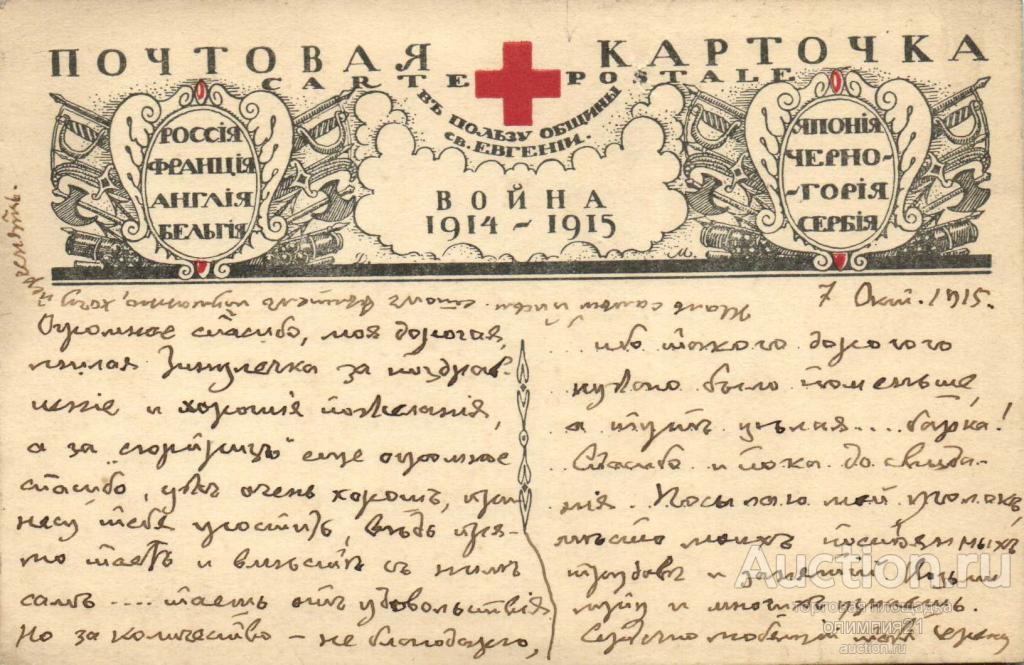 ПОЧТОВАЯ КАРТОЧКА
CARTE POSTALE
въ пользу общины
св. Евгеніи.
РОССІЯ
ФРАНЦІЯ
АНГЛІЯ
БЕЛЬГІЯ
ВОЙНА
1914 - 1915
ЯПОНІЯ
ЧЕРНО-
-ГОРІЯ
СЕРБІЯ
Д. М.
7 Окт. 1915.
Огромное спасибо, моя дорогая,
милая за поздрав-
леніе и хорошія пожеланія,
а за "сюрпризъ" еще огромное
спасибо, ужъ очень хорошъ,
несу тебе угостить, вѣдь пря-
мо таетъ и вмѣстѣ съ нимъ
самъ .... таешь отъ удовольствія
Но за количество - не благодарю,
ибо такого дорогого
нужно было поменьше,
а тутъ цѣлая .... барка!
Спасибо и пока до свида-
нія. Посылаю мой уголокъ,
мѣсто моихъ
трудовъ и занятій.
и многихъ
Сердечно любящій
Auction.ru
торговая площадка
олимпия21
auction.ru